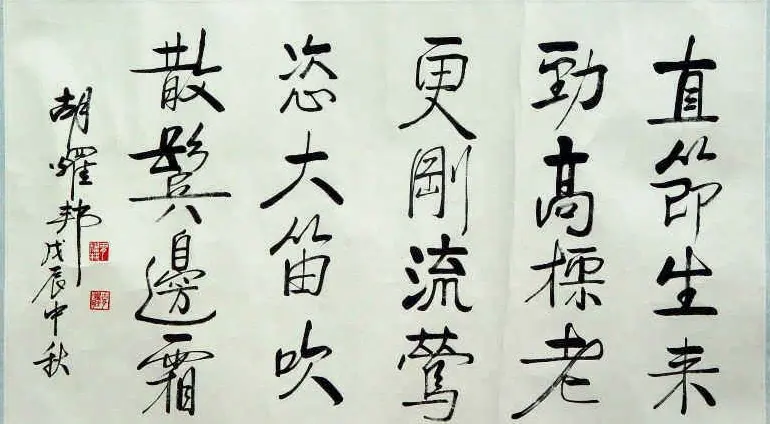 直節生来
勁高標老
更剛流鶯
恣大笛吹
散鬓邊霜
胡耀邦戊辰中秋